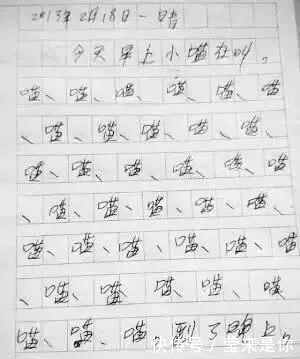 2013年2月18日 一 晴
今天早上小喵在叫。
喵、喵、喵、喵、喵、喵
、喵、喵、喵、喵、喵、
喵、喵、喵、喵、喵、喵
、喵、喵、喵、喵、喵、
喵、喵、喵、喵、喵、喵
、喵、喵、喵、喵、喵
喵、喵、喵 到了晚上。
快传号/里来是你